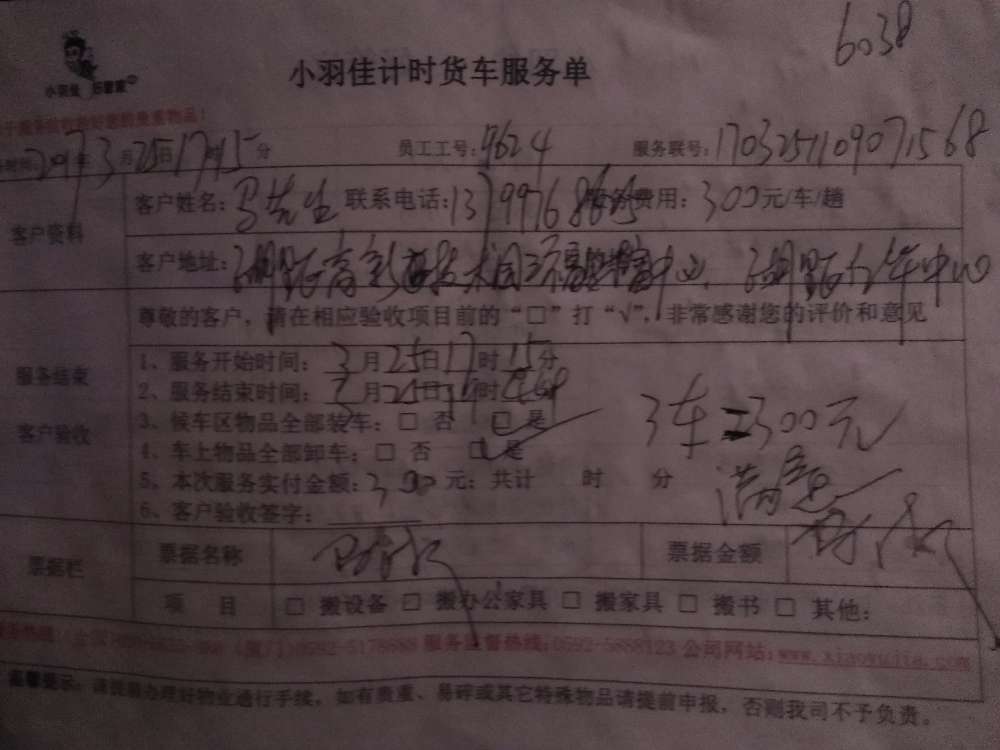 6038
小羽佳计时货车服务单
小羽佳 好管家
2017年3月25日17时15分 员工工号: 9624 服务联号: 170325110907156８
客户资料
客户姓名: 马先生 联系电话: 服务费用: 300元/车/趟
客户地址:
尊敬的客户，请在相应验收项目前的“□”打“√”，非常感谢您的评价和意见
服务结束
客户验收
1、服务开始时间: 3月25日17时15分
2、服务结束时间: 3月25日 时
3、候车区物品全部装车: □ 否 □ 是
4、车上物品全部卸车: □ 否 □ 是
3车=300元
5、本次服务实付金额: 300元: 共计 时 分
满意
6、客户验收签字:
票据栏
票据名称 票据金额
项 目 □ 搬设备 □ 搬办公家具 □ 搬家具 □ 搬书 □ 其他:
0592-5178888 服务监督热线: 0592-5888123 公司网站: www.xiaoyujia.com
温馨提示: 请提前办理好物业通行手续，如有贵重、易碎或其它特殊物品请提前申报，否则我司不予负责。